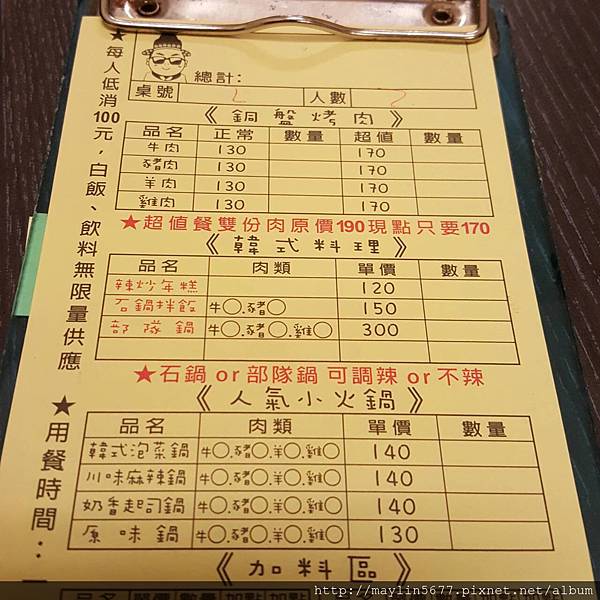 ★每人低消100元，白飯、飲料無限量供應
★用餐時間：
總計：
桌號 2 人數 2
《銅盤烤肉》
品名 正常 數量 超值 數量
牛肉 130 170
豬肉 130 170
羊肉 130 170
雞肉 130 170
★超值餐雙份肉原價190現點只要170
《韓式料理》
品名 肉類 單價 數量
辣炒年糕 120
石鍋拌飯 牛○.豬○ 150
部隊鍋 牛○.豬○.雞○ 300
★石鍋 or 部隊鍋 可調辣 or 不辣
《人氣小火鍋》
品名 肉類 單價 數量
韓式泡菜鍋 牛○.豬○.羊○.雞○ 140
川味麻辣鍋 牛○.豬○.羊○.雞○ 140
奶香起司鍋 牛○.豬○.羊○.雞○ 140
原味鍋 牛○.豬○.羊○.雞○ 130
《加料區》
http://maylin5677.pixnet.net/album